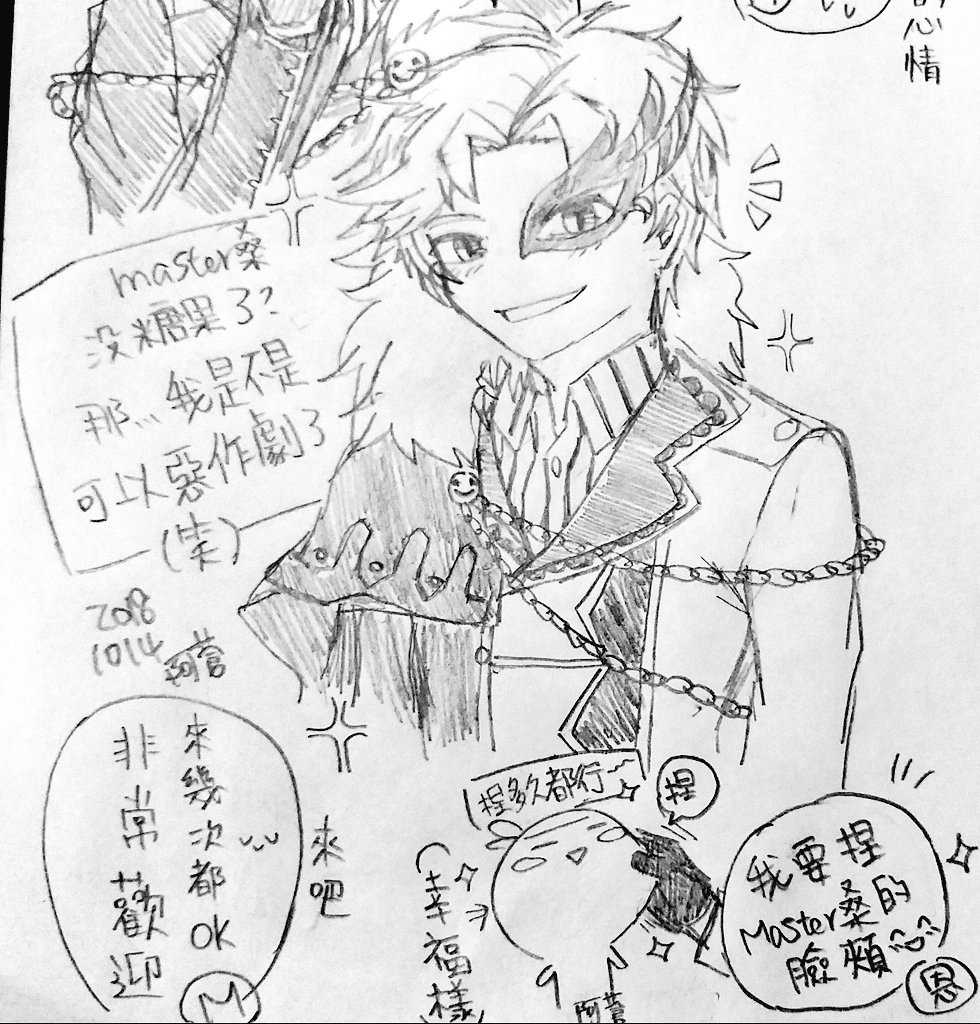 心情
master桑
没糖果了?
那... 我是不是
可以惡作劇了
(笑)
2018
1014 阿蒼
來幾次都OK
非常歡迎
M
來吧
捏多久都行~
捏
幸福樣
阿蒼
我要捏
Master桑的
臉頰
恩